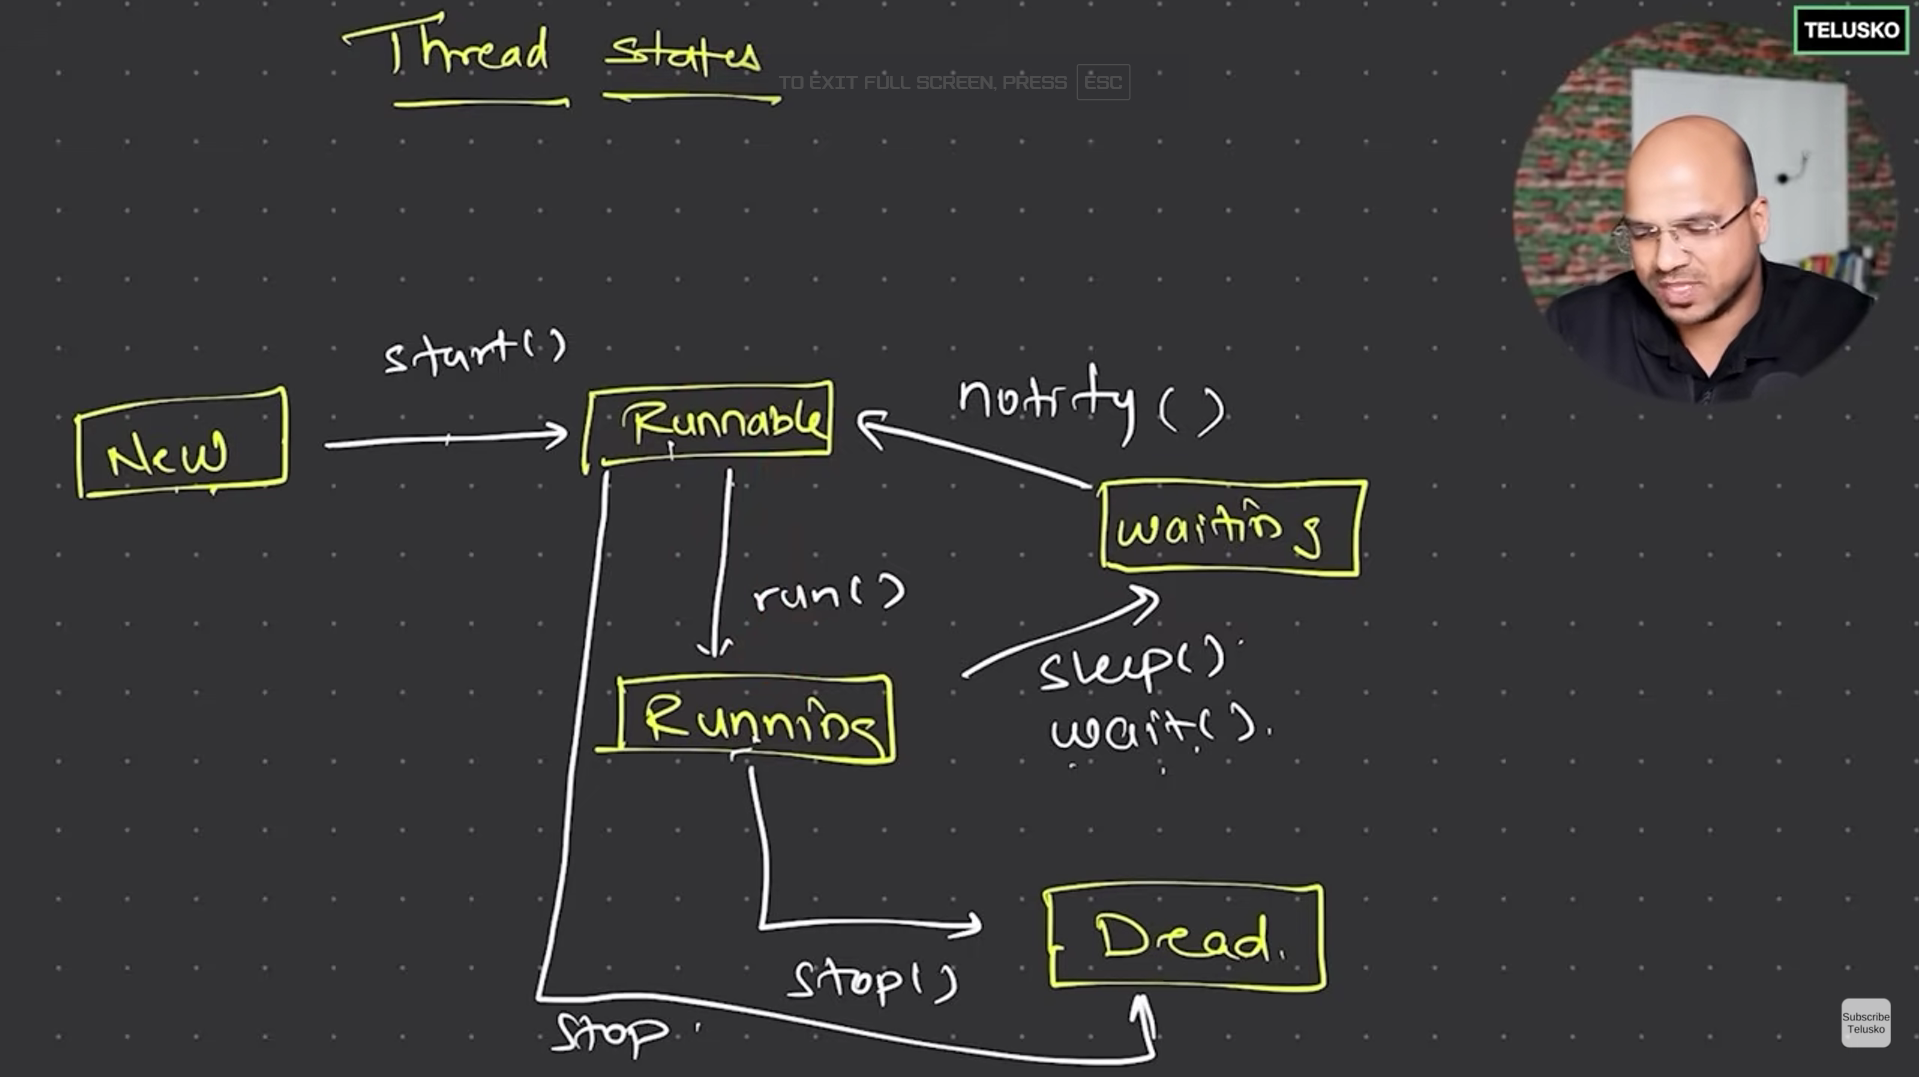 TELUSKO
Thread States
TO EXIT FULL SCREEN, PRESS ESC
start()
notify()
New
Runnable
waiting
run()
sleep()
wait().
Running
Dead.
stop()
stop
Subscribe
Telusko